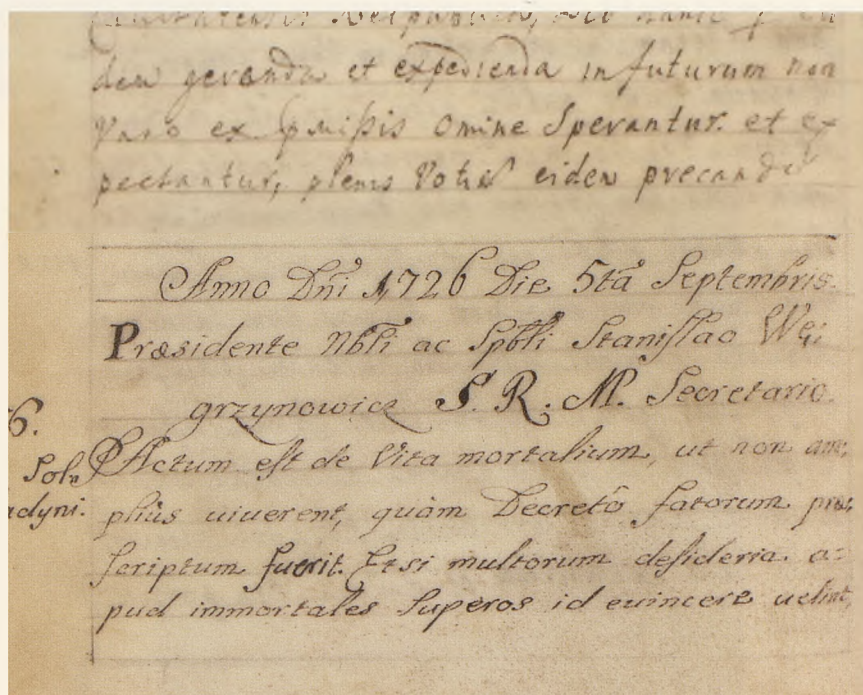 den gerenda et expedienda in futurum non
Vano ex præmissis Omine Sperantur. et ex
pectantur, plenis Votis eiden precando
Anno Dni 1726 Die 5ta Septembris.
Præsidente Nbli ac Spbli Stanislao Wę:
grzynowicz S. R. M. Secretario.
Actum est de Vita mortalium, ut non am:
pliùs uiuerent, quàm Decretô fatorum præ:
scriptum fuerit. Etsi multorum desideria a:
pud immortales Superos id euincere uelint,
6.
Sole
adyni.